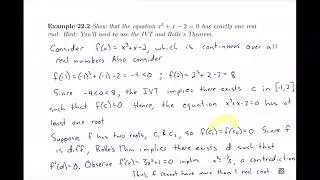 Example 22.2 Show that the equation x³ + x − 2 = 0 has exactly one real
root. Hint: You'll need to use the IVT and Rolle's Theorem.
Consider f(x) = x³+x-2, which is continuous over all
real numbers. Also consider
f(-1) = (-1)³ + (-1) - 2 = -4 < 0 ; f(2) = 2³ + 2 - 2 = 8.
Since -4<0<8, the IVT implies there exists c in [-1,2]
such that f(c)=0. Hence, the equation x³+x-2=0 has at
least one root
Suppose f has two roots, c₁ & c₂, so f(c₁)=f(c₂)=0. Since f
is diff, Rolle's Thm implies there exists d such that
f'(d)=0. Observe f'(x) = 3x²+1 = 0 implies x² = -1/3, a contradiction
Thus, f cannot have more than 1 real root.